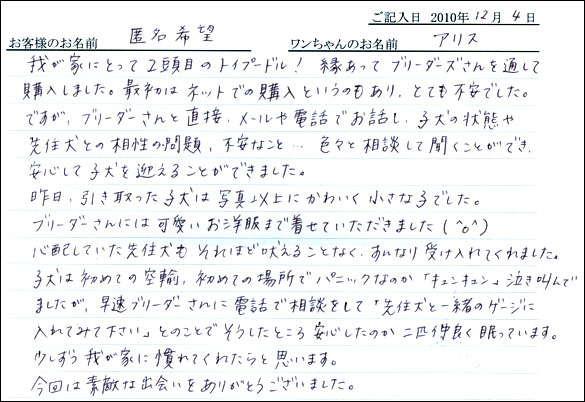 ご記入日 2010年 12月 4日
お客様のお名前 匿名希望 ワンちゃんのお名前 アリス
我が家にとって2頭目のトイプードル! 縁あって ブリーダーズさんを通して
購入しました。最初は ネットでの購入というのもあり、とても不安でした。
ですが、ブリーダーさんと直接、メールや電話でお話し、子犬の状態や
先住犬との相性の問題、不安なこと… 色々と相談して聞くことができ、
安心して子犬を迎えることができました。
昨日、引き取った子犬は写真以上にかわいく小さな子でした。
ブリーダーさんには可愛いお洋服まで着せていただきました(^o^)
心配していた先住犬も それほど吠えることなく、すんなり受け入れてくれました。
子犬は初めての空輸、初めての場所でパニックなのか「キュンキュン」泣き叫んで
ましたが、早速ブリーダーさんに電話で相談をして「先住犬と一緒のゲージに
入れてみて下さい」とのことで そうしたところ 安心したのか 二匹仲良く眠っています。
少しずつ我が家に慣れてくれたらと思います。
今回は素敵な出会いをありがとうございました。